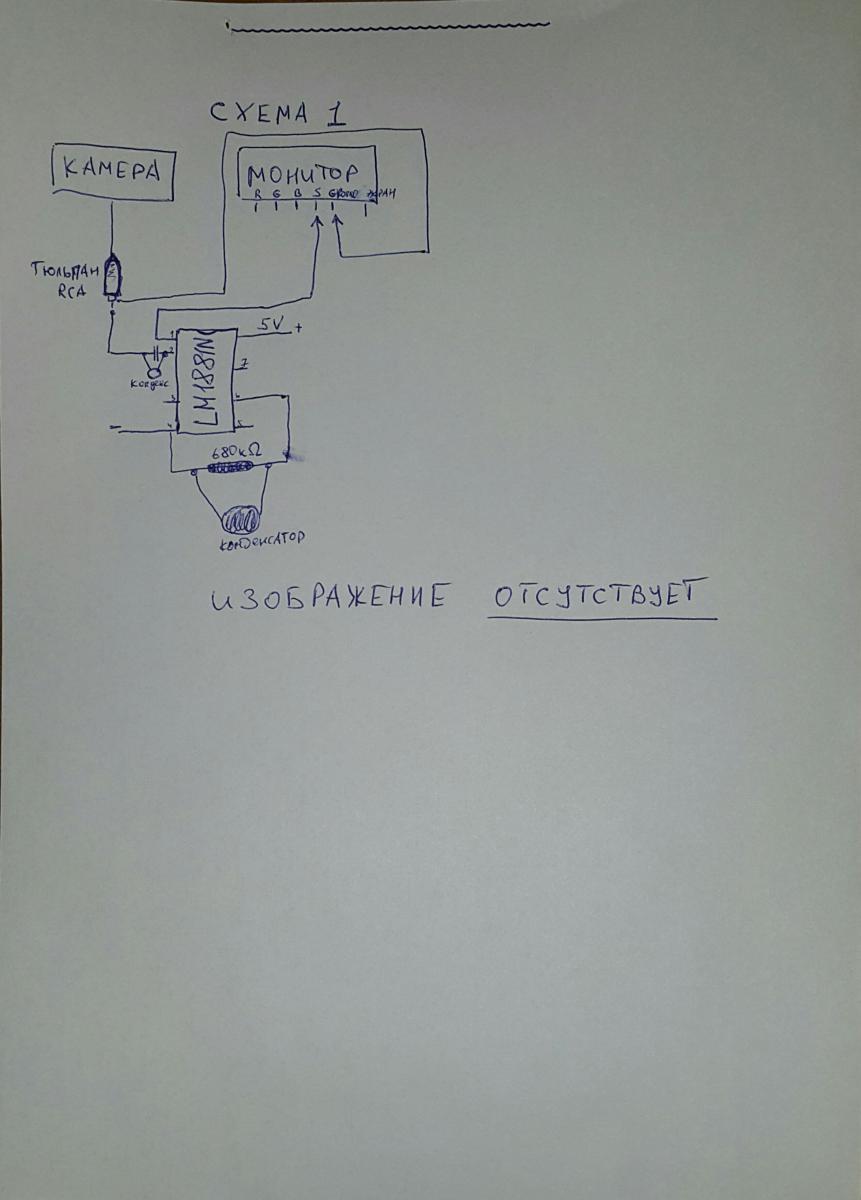 СХЕМА 1
КАМЕРА
МОНИТОР
R G B S GROUND ЭКРАН
ТЮЛЬПАН
RCA
5V +
1
2
7
КОНДЕНС
LM1881N
3
6
- 4
5
680кΩ
КОНДЕНСАТОР
ИЗОБРАЖЕНИЕ ОТСУТСТВУЕТ